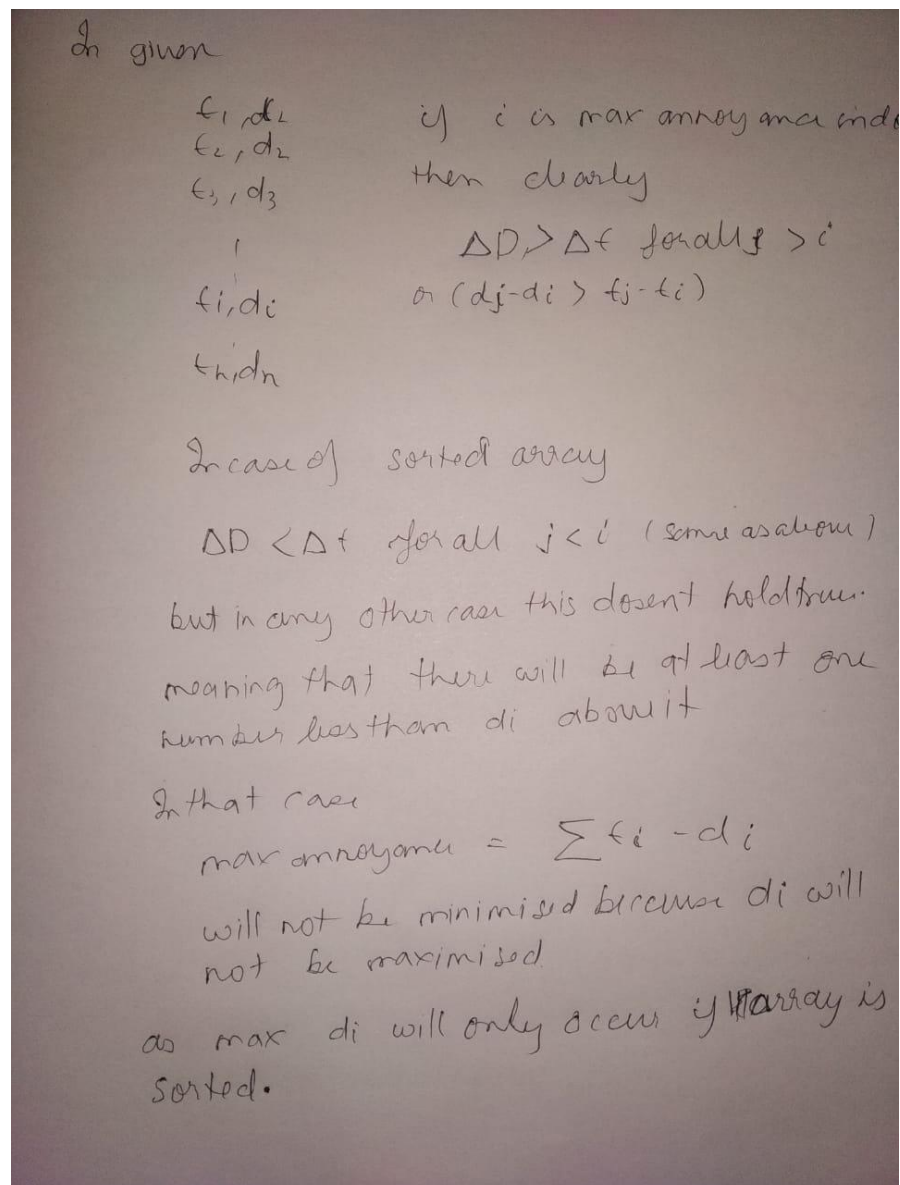 In given
t1, d1
if i is max annoyance inde
t2, d2
then clearly
t3, d3
ΔD > Δt for all j > i
ti, di
or (dj-di > tj-ti)
tn, dn
In case of sorted array
ΔD < Δt for all j < i (same as above)
but in any other case this dosent hold true.
meaning that there will be at least one
number less than di above it
In that case
max annoyance = Σ ti - di
will not be minimised because di will
not be maximised
as max di will only occur if array is
sorted.